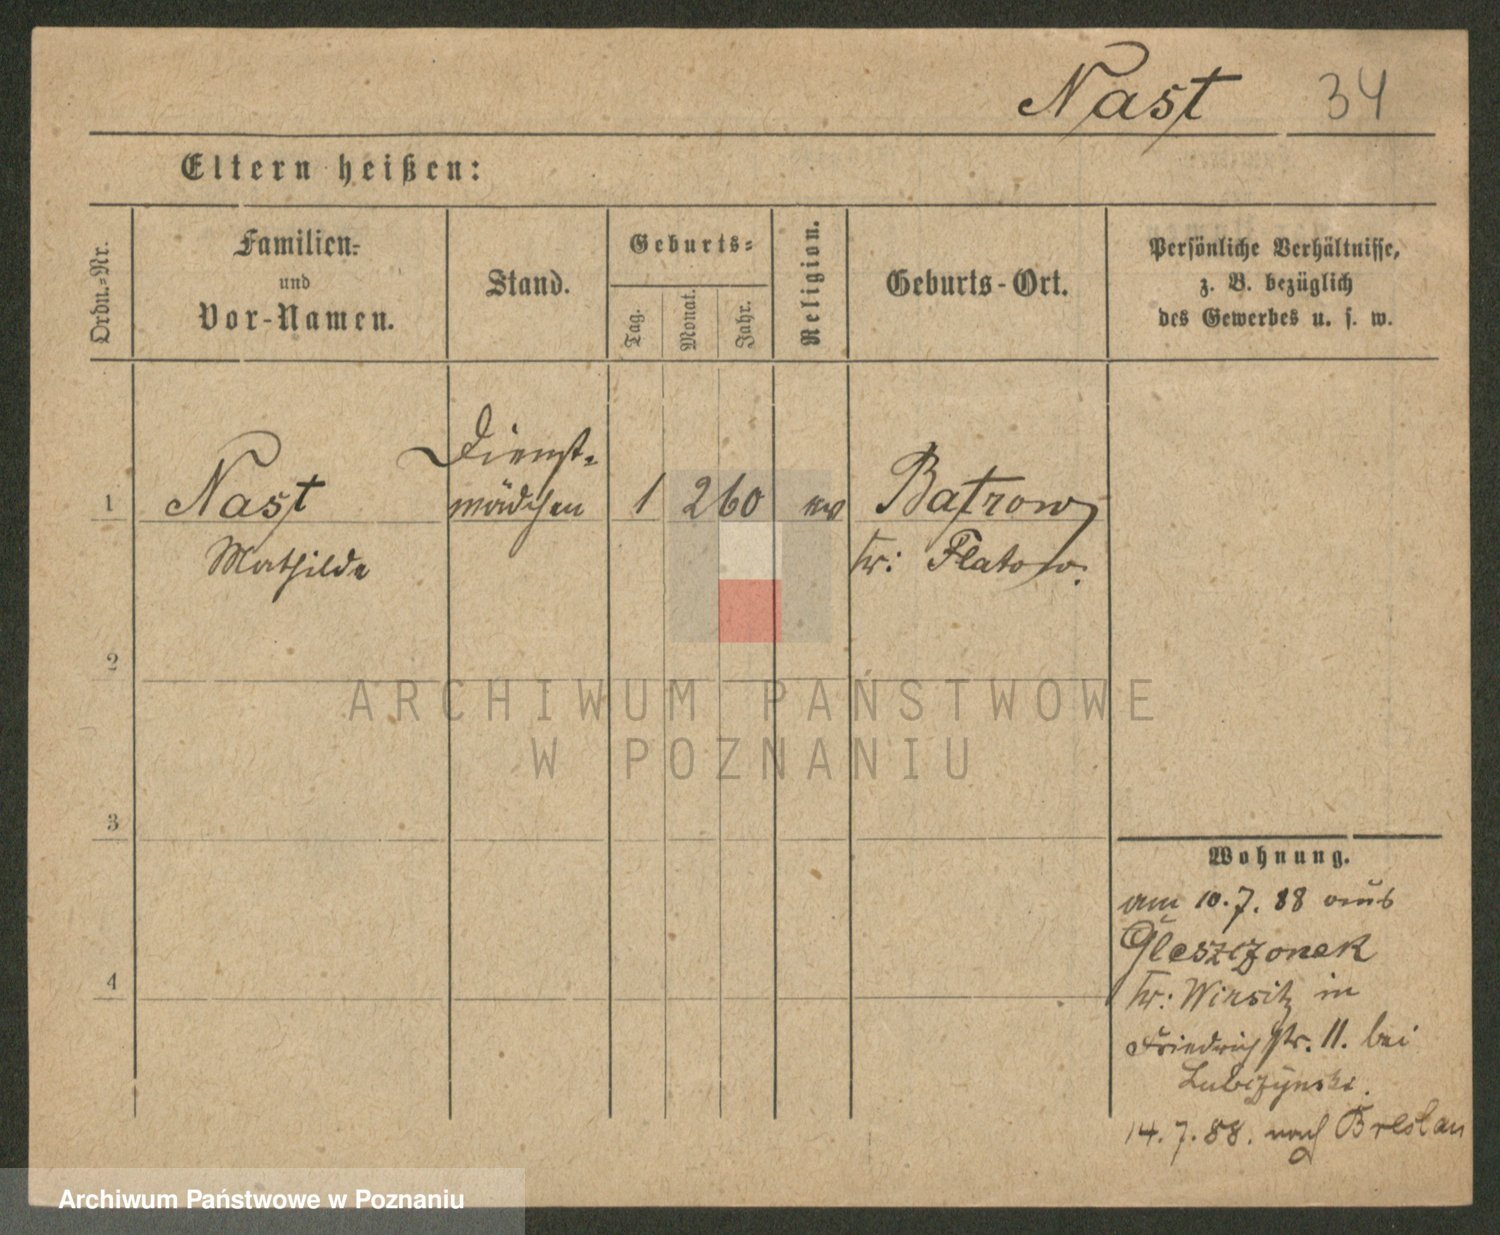 Nast 34
Eltern heißen:
Ordn.=Nr.
Familien=
und
Vor-Namen.
Stand.
Geburts=
Tag.
Monat.
Jahr.
Religion.
Geburts-Ort.
Persönliche Verhältnisse,
z. B. bezüglich
des Gewerbes u. s. w.
Dienst-
1 Nast mädchen 1 2 60 ev Batrow
Mathilde Kr: Flatow.
2
3
4
Wohnung.
am 10.7.88 aus
Kr: Wirsitz in
Friedrichstr. 11. bei
Lubczynski.
14.7.88. nach Breslau
ARCHIWUM PAŃSTWOWE
W POZNANIU
Archiwum Państwowe w Poznaniu